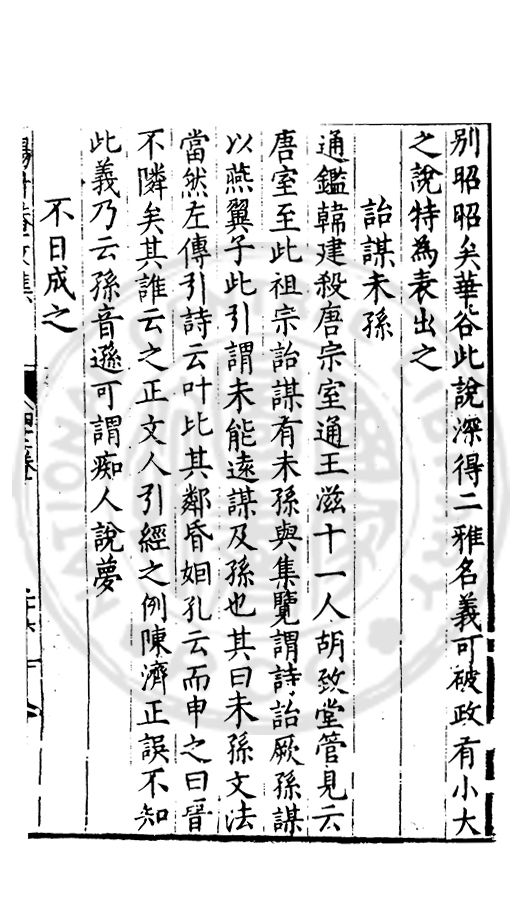 別昭昭矣華谷此說深得二雅名義可破政有小大
之說特為表出之
詒謀未孫
通鑑韓建殺唐宗室通王滋十一人胡致堂管見云
唐室至此祖宗詒謀有未孫與集覽謂詩詒厥孫謀
以燕翼子此引謂未能遠謀及孫也其曰未孫文法
當然左傳引詩云叶比其鄰昏姻孔云而申之曰晉
不隣矣其誰云之正文人引經之例陳濟正誤不知
此義乃云孫音遜可謂痴人說夢
不日成之